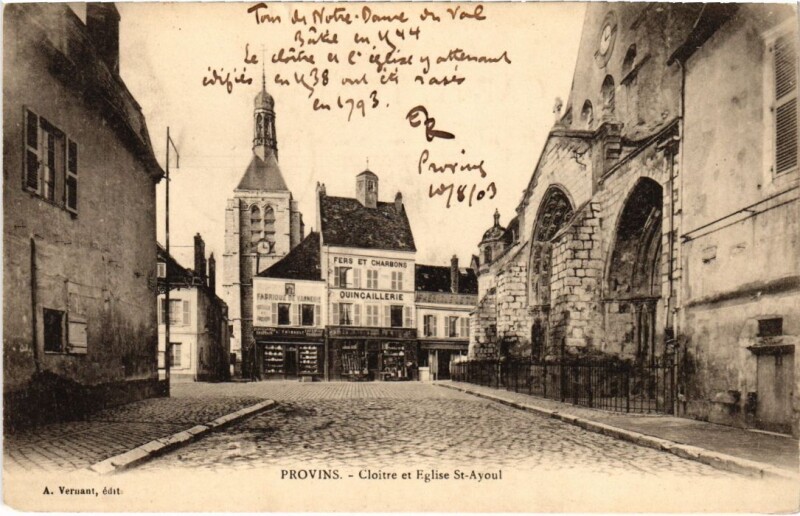 Tour de Notre-Dame du Val
Bâtie en 1544
Le cloître et l'église y attenant
édifiés en 1538 ont été rasés
en 1793.
Provins
10/8/03
FERS ET CHARBONS
QUINCAILLERIE
FABRIQUE DE
PROVINS. - Cloitre et Eglise St-Ayoul
A. Vernant, édit.